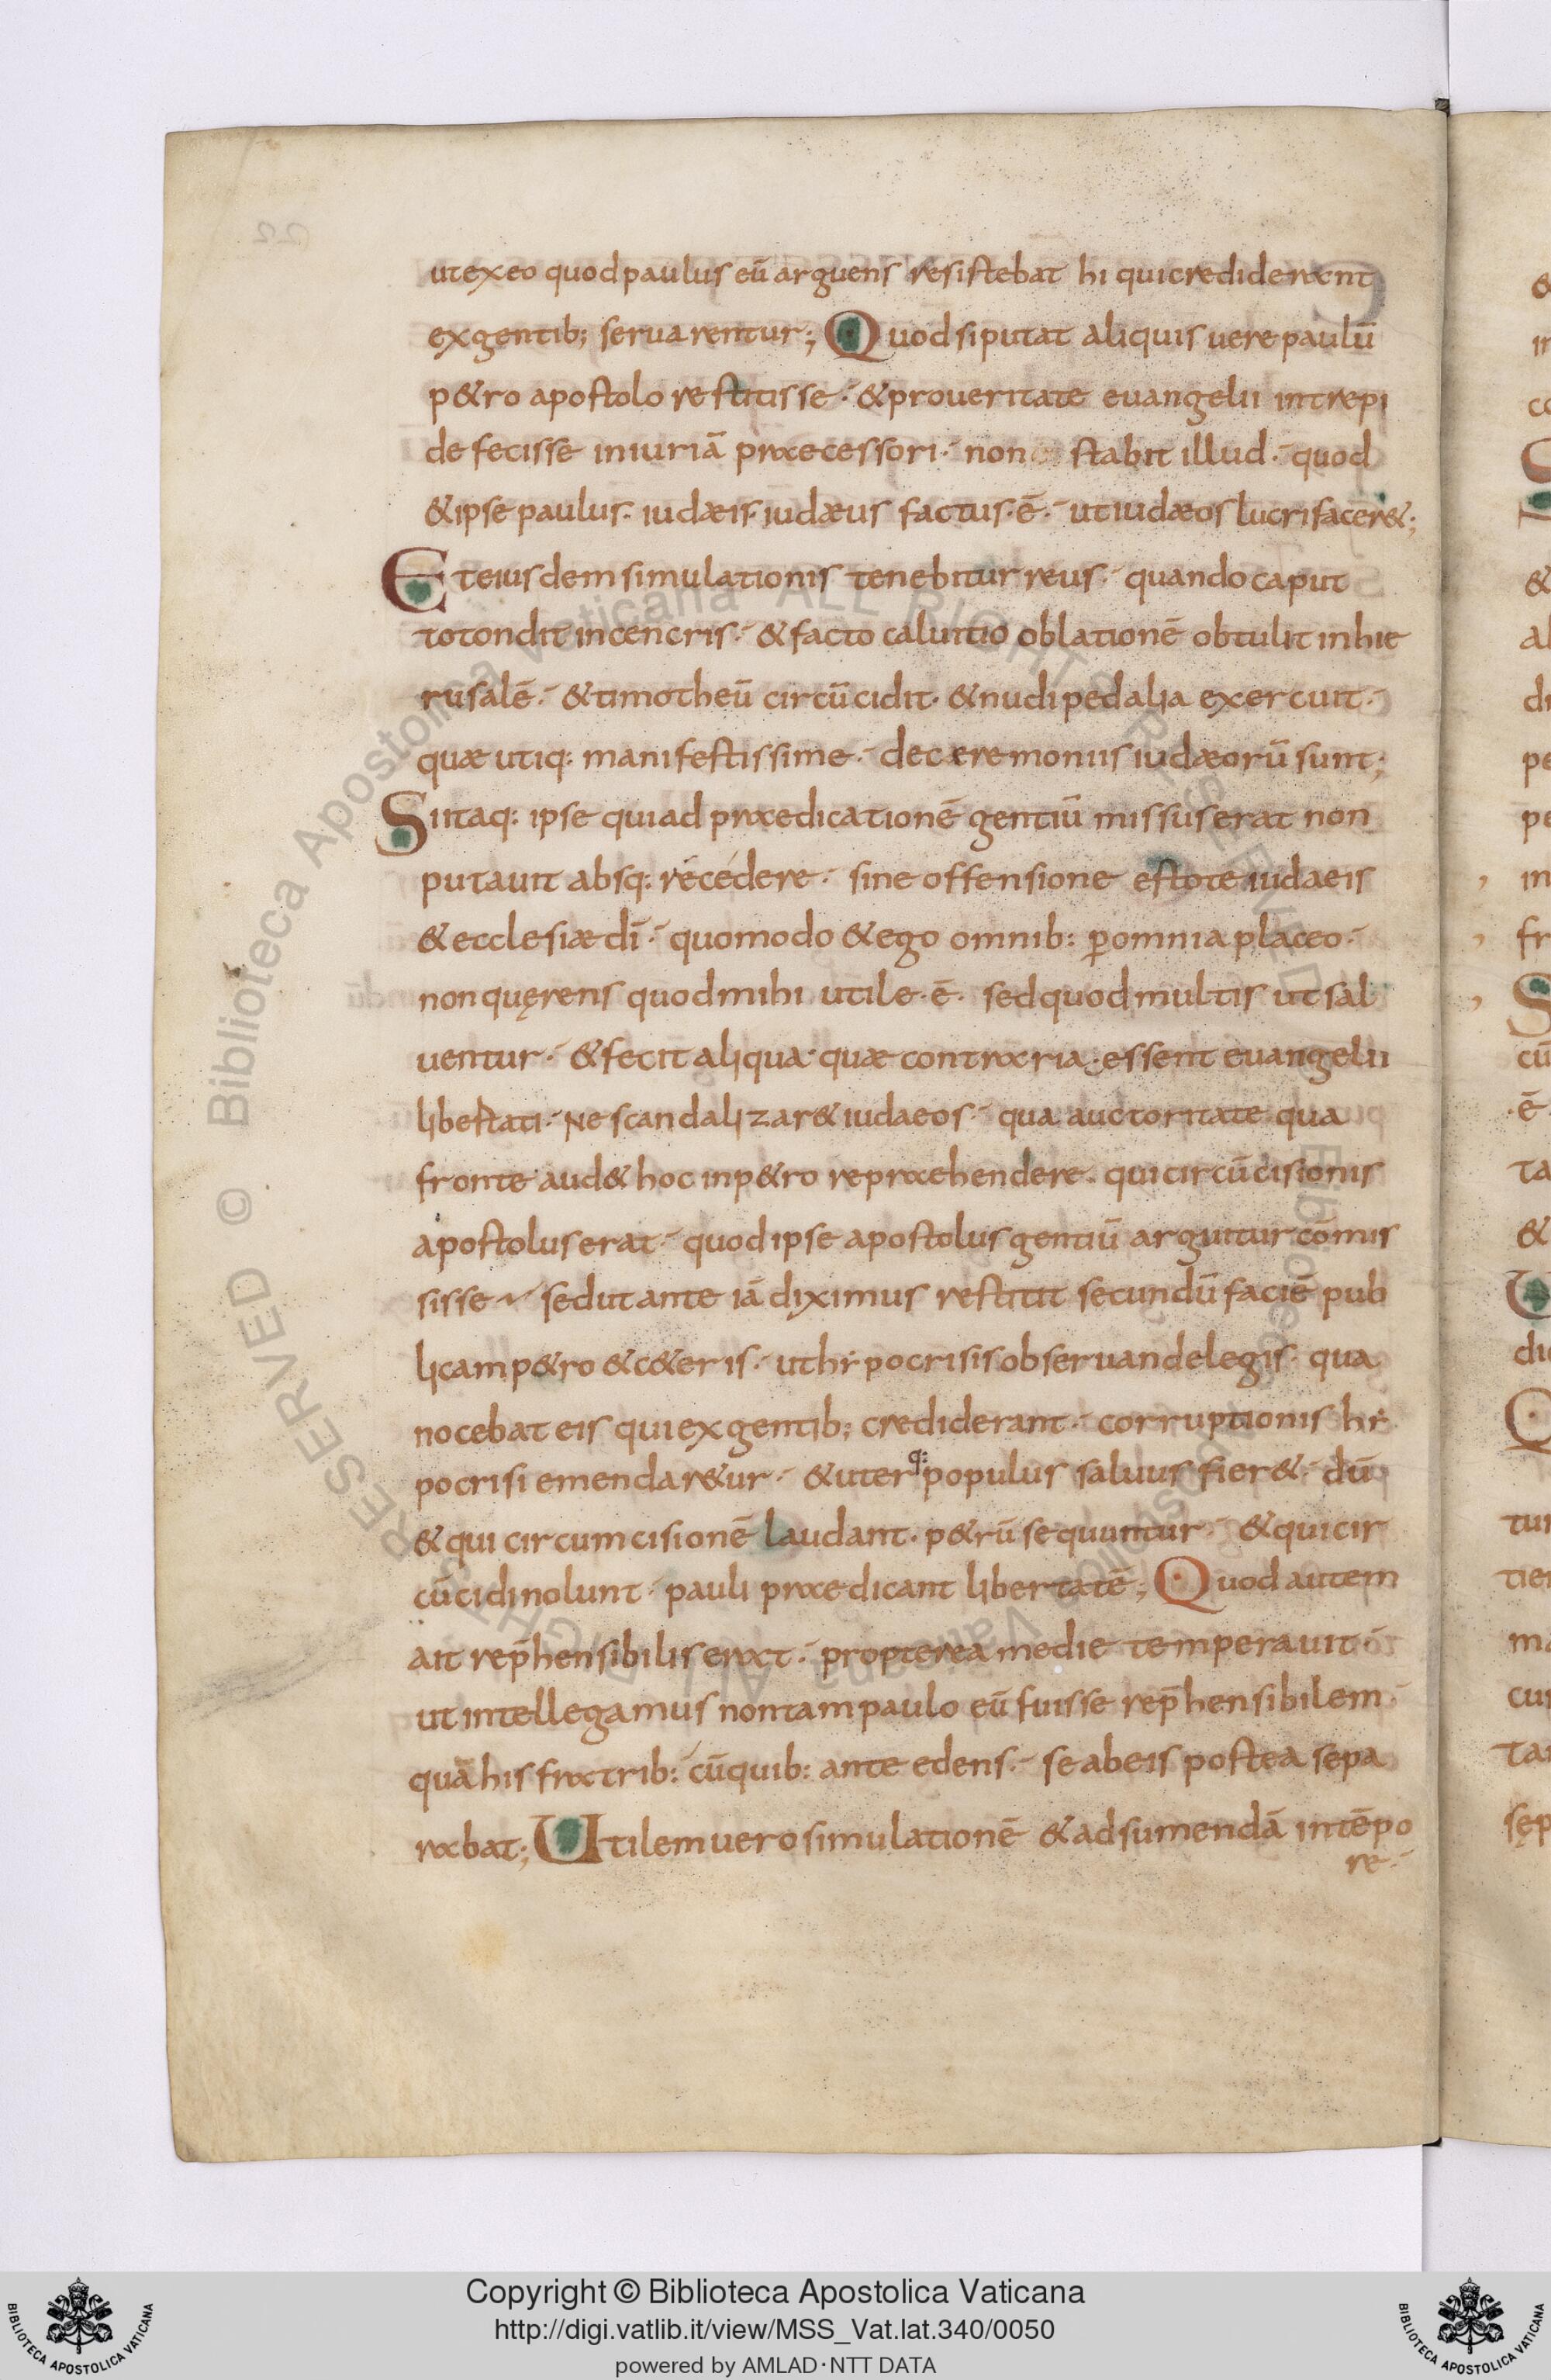 ut ex eo quod paulus eū arguens resistebat hi qui crediderant
ex gentib; seruarentur; Quod si putat aliquis uere paulū
p&ro apostolo restitisse · & pro ueritate euangelii intrepi
de fecisse iniuriā praecessori · non stabit illud · quod
& ipse paulus · iudæis · iudæus factus · ē · ut iudæos lucrifacer&;
Et eiusdem simulationis tenebitur reus · quando caput
totondit in cencris · & facto caluitio oblationē obtulit in hie
rusalē · & timotheū circūcidit · & nudipedalia exercuit ·
quæ utiq: manifestissime · de cæremoniis iudæorū sunt;
Si itaq: ipse qui ad praedicationē gentiū missus erat non
putauit absq: recedere · sine offensione estote iudaeis
& ecclesiæ dī · quomodo & ego omnib: ꝑ omnia placeo ·
non quęrens quod mihi utile · ē · sed quod multis ut sal
uentur · & fecit aliqua · quæ contraria · essent euangelii
libertati · Ne scandalizar& iudaeos · qua auctoritate qua
fronte aud& hoc in p&ro repraehendere · qui circūcisionis
apostolus erat · quod ipse apostolus gentiū arguitur cōmis
sisse · sed ut ante iā diximus restitit secundū faciē pub
licam p&ro & c&eris · ut hẏpocrisis obseruande legis · qua
nocebat eis qui ex gentib; crediderant · corruptionis hẏ
pocrisi emendar&ur · & uterq: populus saluus fier& · dū
& qui circumcisionē laudant · p&rū sequuntur · & qui cir
cūcidi nolunt · pauli praedicant libertatē; Quod autem
ait rep̄hensibilis erat · propterea medie temperauit
ut intellegamus non tam paulo eū fuisse rep̄hensibilem ·
quā his fratrib: cū quib: ante edens · se ab eis postea sepa
rabat; Utilem uero simulationē & adsumendā in tēpo
re ·
Copyright © Biblioteca Apostolica Vaticana
http://digi.vatlib.it/view/MSS_Vat.lat.340/0050
powered by AMLAD·NTT DATA